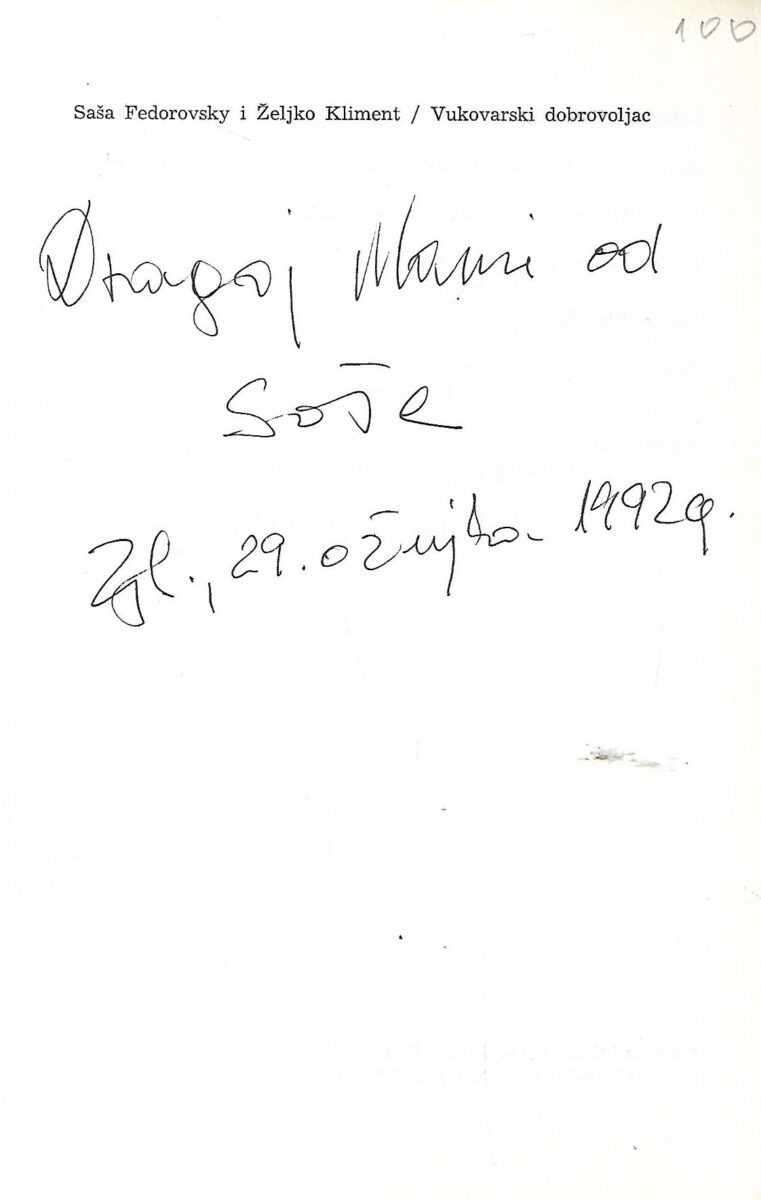 100
Saša Fedorovsky i Željko Kliment / Vukovarski dobrovoljac
Dragoj Mami od
Saše
Zgb., 29. ožujka 1992g.